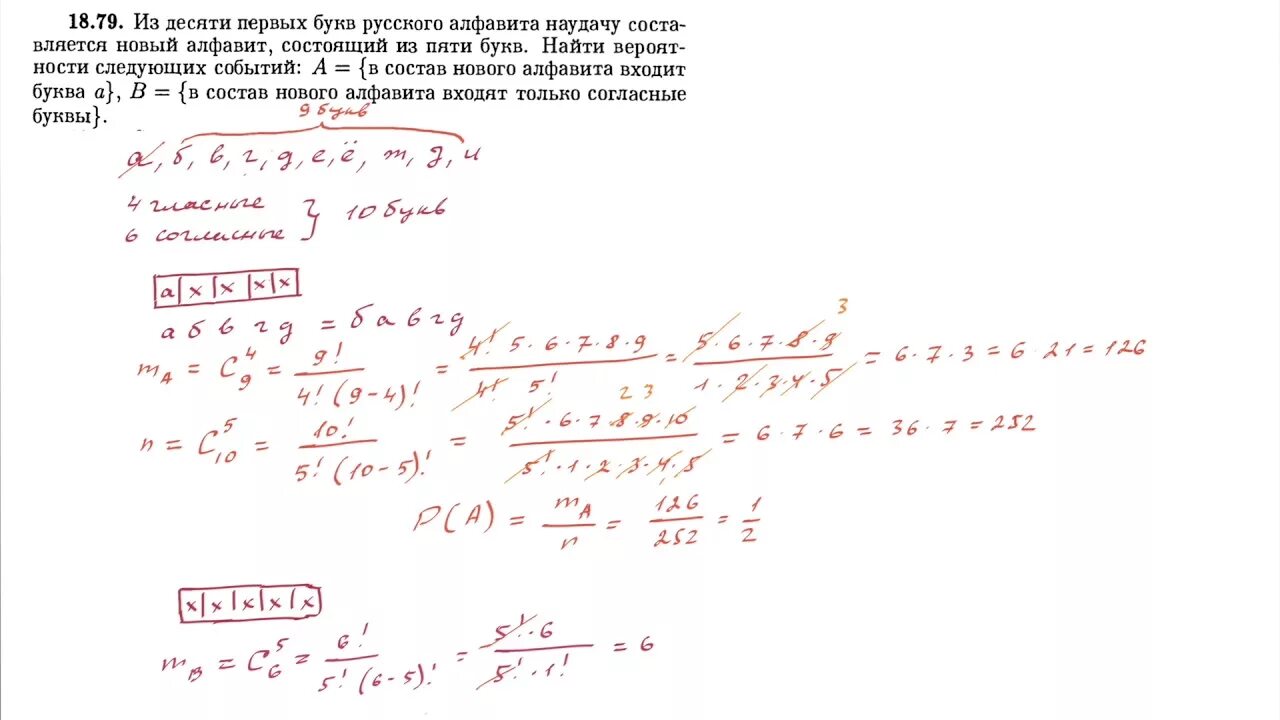 18.79. Из десяти первых букв русского алфавита наудачу соста-
вляется новый алфавит, состоящий из пяти букв. Найти вероят-
ности следующих событий: A = {в состав нового алфавита входит
буква а}, B = {в состав нового алфавита входят только согласные
буквы}.
9 букв
а, б, в, г, д, е, ё, ж, з, и
4 гласные
6 согласные } 10 букв
а | x | x | x | x
а б в г д = б а в г д
m_A = C_9^4 = 9! / (4! (9-4)!) = (4! 5·6·7·8·9) / (4! 5!) = (5·6·7·8·9) / (1·2·3·4·5) = 6·7·3 = 6·21 = 126
3
n = C_10^5 = 10! / (5! (10-5)!) = (5!·6·7·8·9·10) / (5!·1·2·3·4·5) = 6·7·6 = 36·7 = 252
2 3
P(A) = m_A / n = 126 / 252 = 1/2
x | x | x | x | x
m_B = C_6^5 = 6! / (5! (6-5)!) = (5!·6) / (5!·1!) = 6